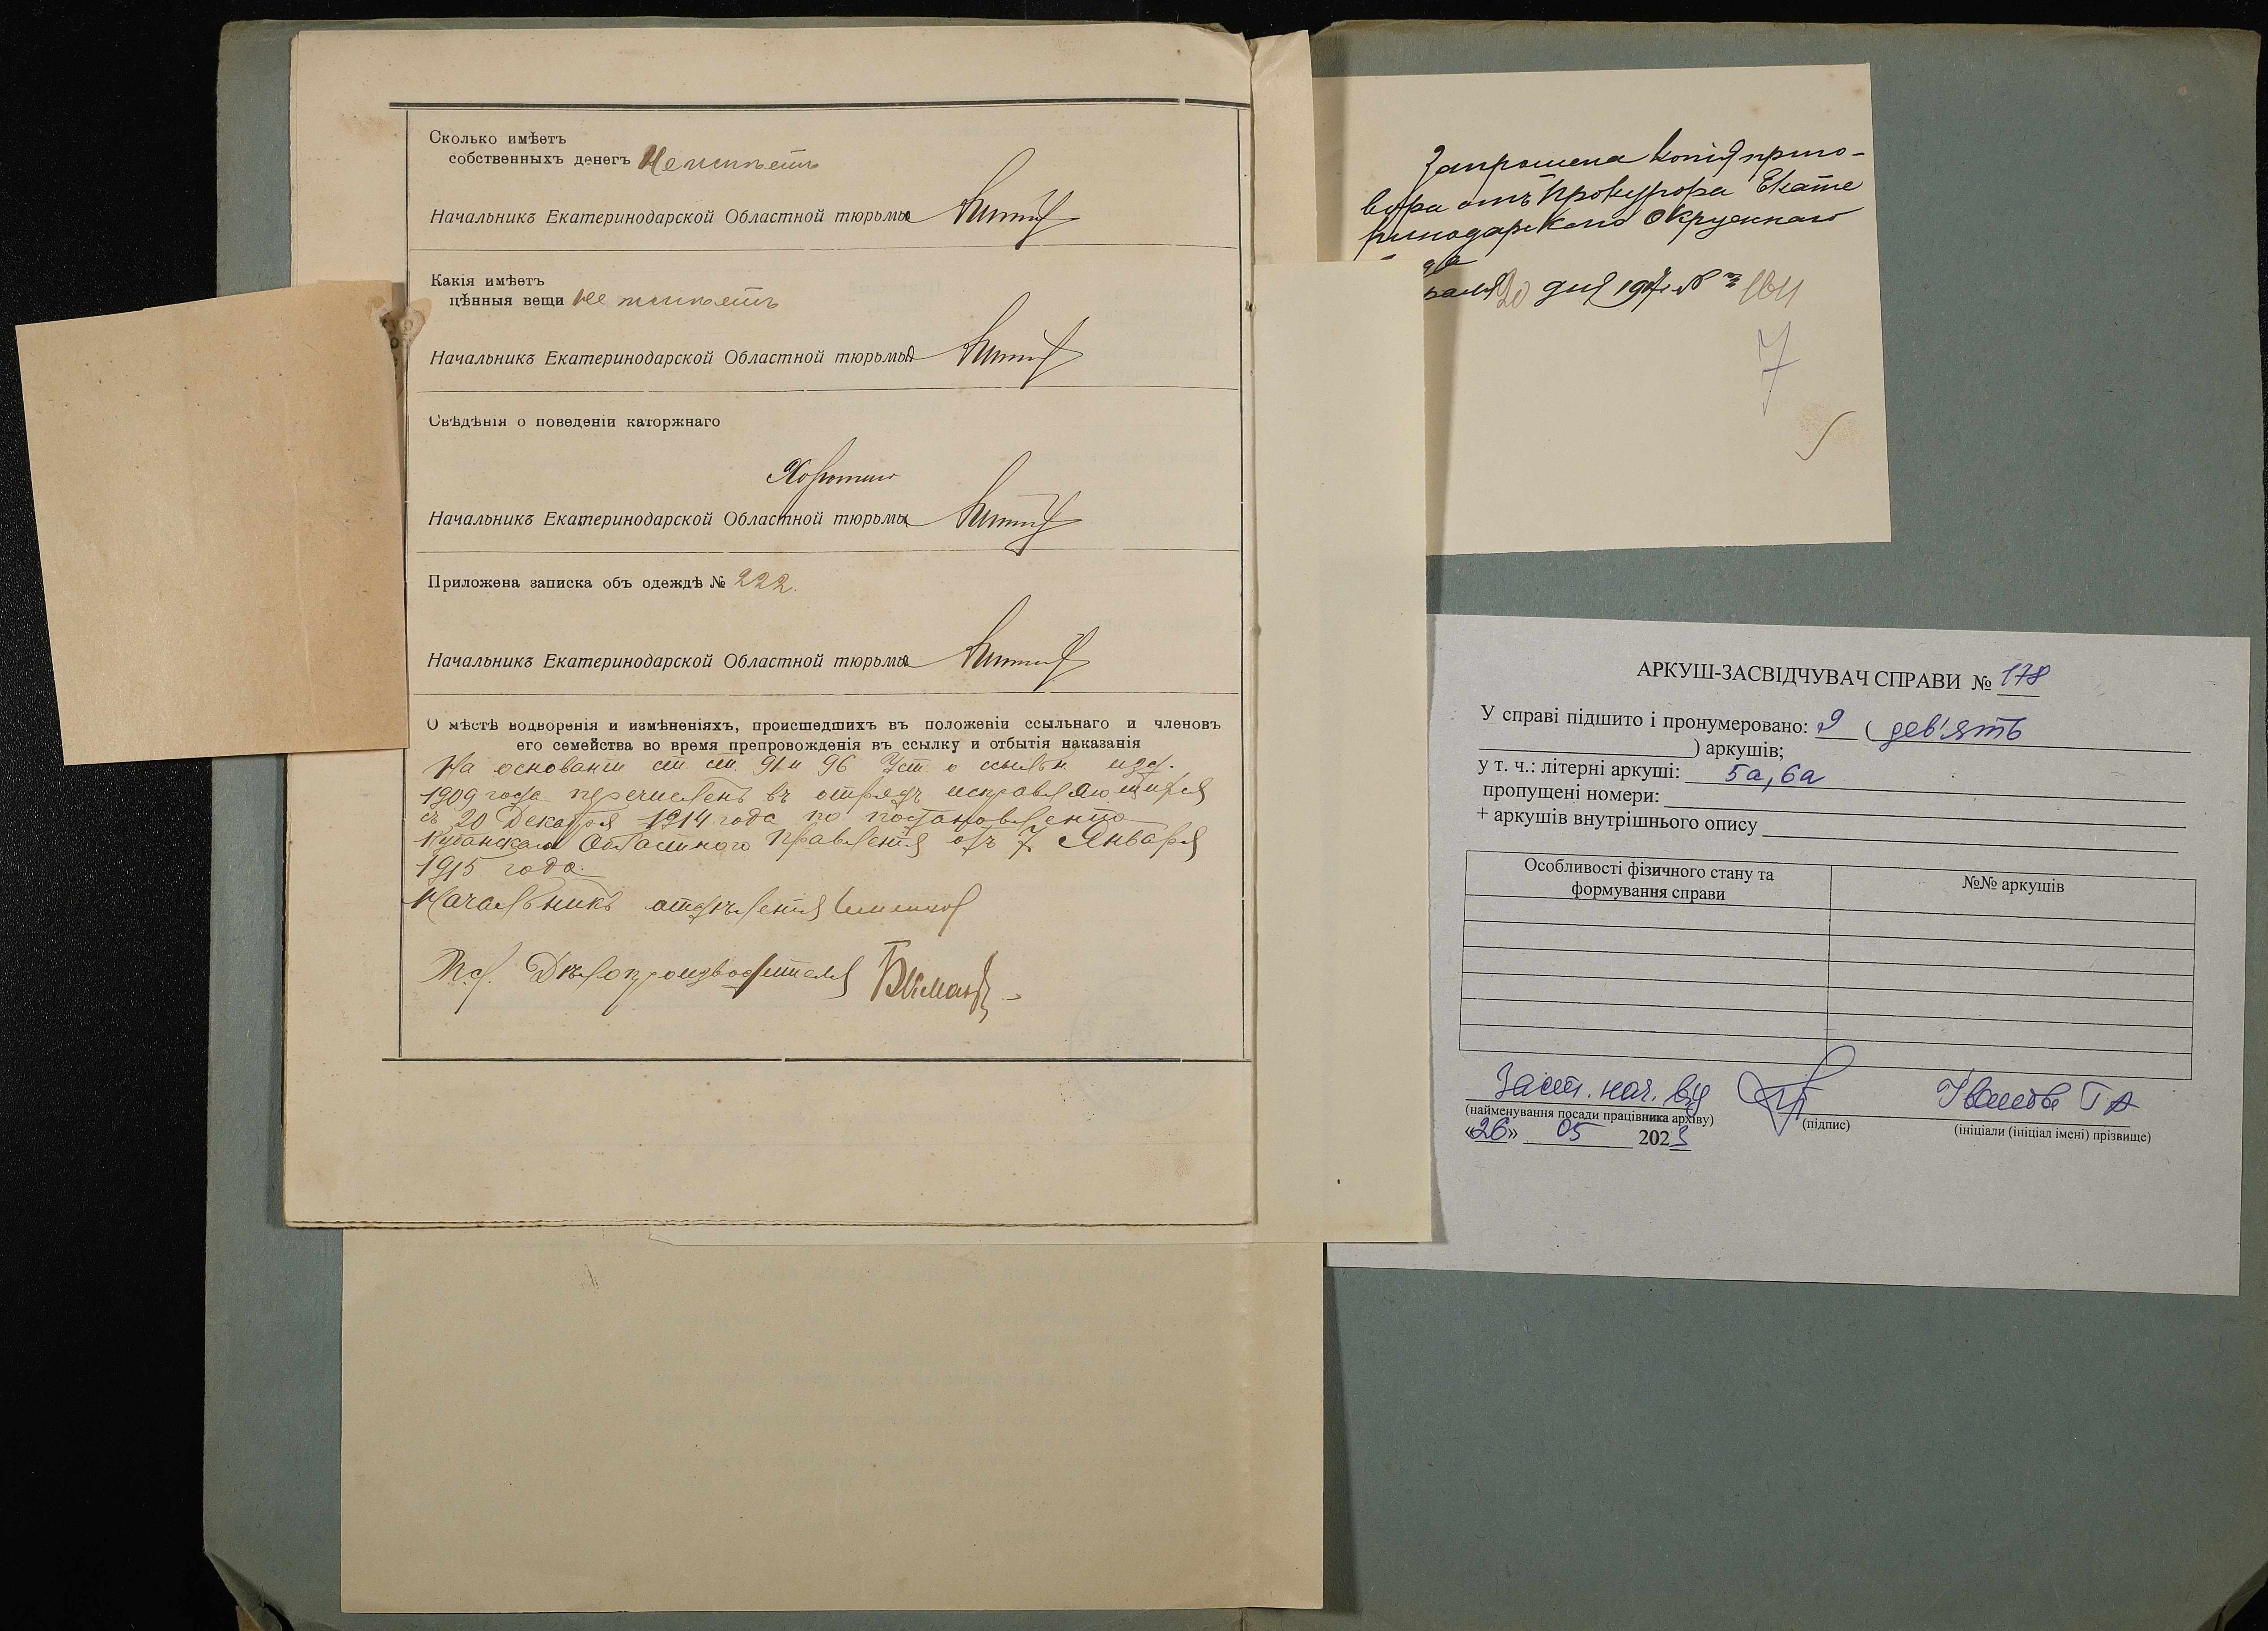 Сколько имѣетъ
собственныхъ денегъ Не имѣетъ
Начальникъ Екатеринодарской Областной тюрьмы
Какія имѣетъ
цѣнныя вещи не имѣетъ
Начальникъ Екатеринодарской Областной тюрьмы
Свѣдѣнія о поведеніи каторжнаго
Хорошаго
Начальникъ Екатеринодарской Областной тюрьмы
Приложена записка объ одеждѣ № 222.
Начальникъ Екатеринодарской Областной тюрьмы
О мѣстѣ водворенія и измѣненіяхъ, происшедшихъ въ положеніи ссыльнаго и членовъ
его семейства во время препровожденія въ ссылку и отбытія наказанія
На основаніи ст. ст. 91 и 96 Уст. о ссыльн изд.
1909 года перечисленъ въ отрядъ исправляющихся
съ 20 Декабря 1914 года по постановленію
Кубанскаго Областного Правленія отъ 7 Января
1915 года.
Начальникъ отдѣленія
И.д. Дѣлопроизводителя
Запрошена копія приго-
вора отъ Прокурора Екате
ринодарскаго Окружнаго
да
раля 20 дня 1917 г. №
7
АРКУШ-ЗАСВІДЧУВАЧ СПРАВИ № 178
У справі підшито і пронумеровано: 9 ( дев'ять
) аркушів;
у т. ч.: літерні аркуші: 5а, 6а
пропущені номери:
+ аркушів внутрішнього опису
Особливості фізичного стану та
формування справи
№№ аркушів
Заст. нач. від
(найменування посади працівника архіву)
(підпис)
Іванова Г А
(ініціали (ініціал імені) прізвище)
«26» 05 2023